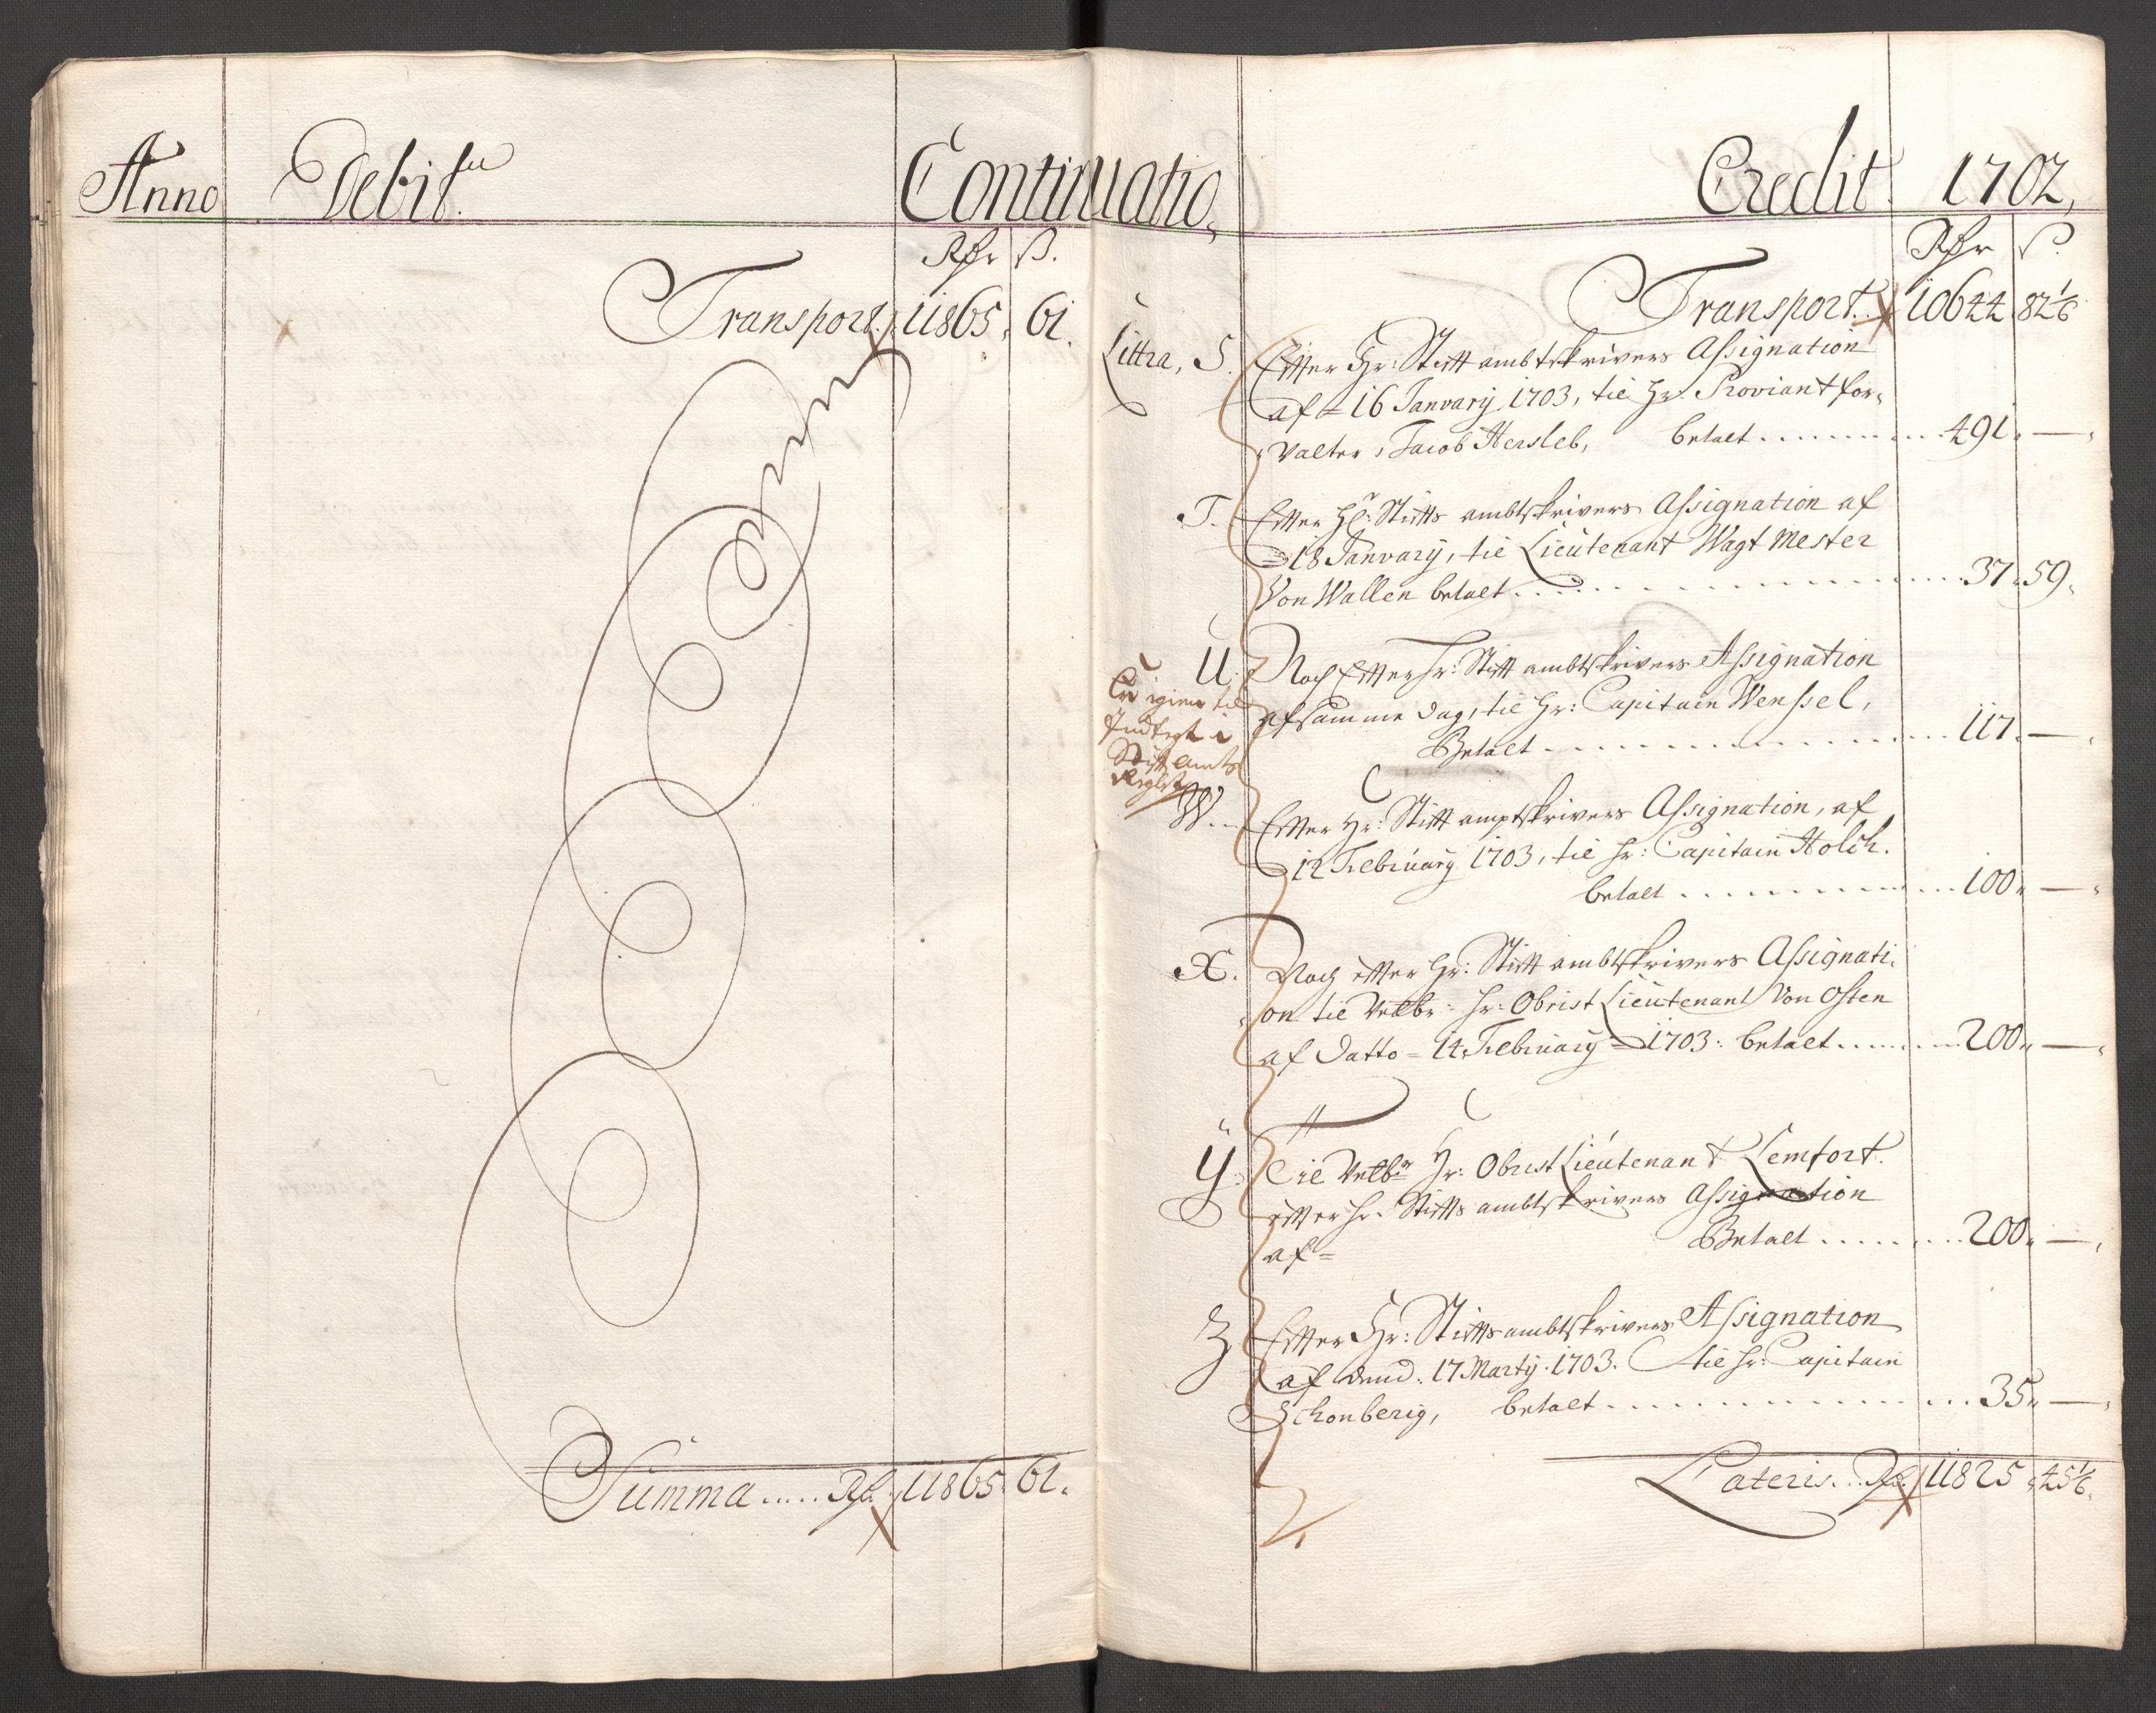 Anno Debit Continuatio, Credit. 1702,
Rdr ß.
Transport. 11865. 61.
Summa ..... Rd. 11865. 61.
Rdr ß.
Transport. 10644 82 1/6
Littra, S. Effter Hr: Stift ambtskrivers Assignation
af = 16 January 1703, til Hr. Proviant for,
valter, Jacob Hersleb, betalt ........... 491. —
T. Effter Hr: Stiftts ambtskrivers Assignation af
18 January, til Lieutenant Wagt Mester
Von Wallen betalt ........... 37. 59.
U. Noch Effter Hr: Stift ambtskrivers Assignation
af samme dag, til Hr: Capitain Wenssel,
Betalt ........... 117. —
Er igien til
Indtegt i
Stift Amts
Regl
W. Effter Hr: Stift amptskrivers Assignation, af
12 Februarÿ 1703, til Hr: Capitain Holck.
betalt ........... 100. —
X. Noch effter Hr: Stift ambtskrivers Assignati,
on til Velbr: Hr: Obrist Lieutenant Von Osten
af Datto = 14 Februarÿ = 1703. betalt ......... 200. —
Y. Til Velbr Hr: Obrist Lieutenant Lemfort.
effter Hr. Stiftts ambtskrivers Assignation
af = Betalt ......... 200. —
Z Effter Hr: Stiftts ambtskrivers Assignation
af dend. 17 Martÿ. 1703. til Hr: Capitain
Schonberig, betalt ........... 35. —
Lateris. Rd. 11825. 45 1/6.